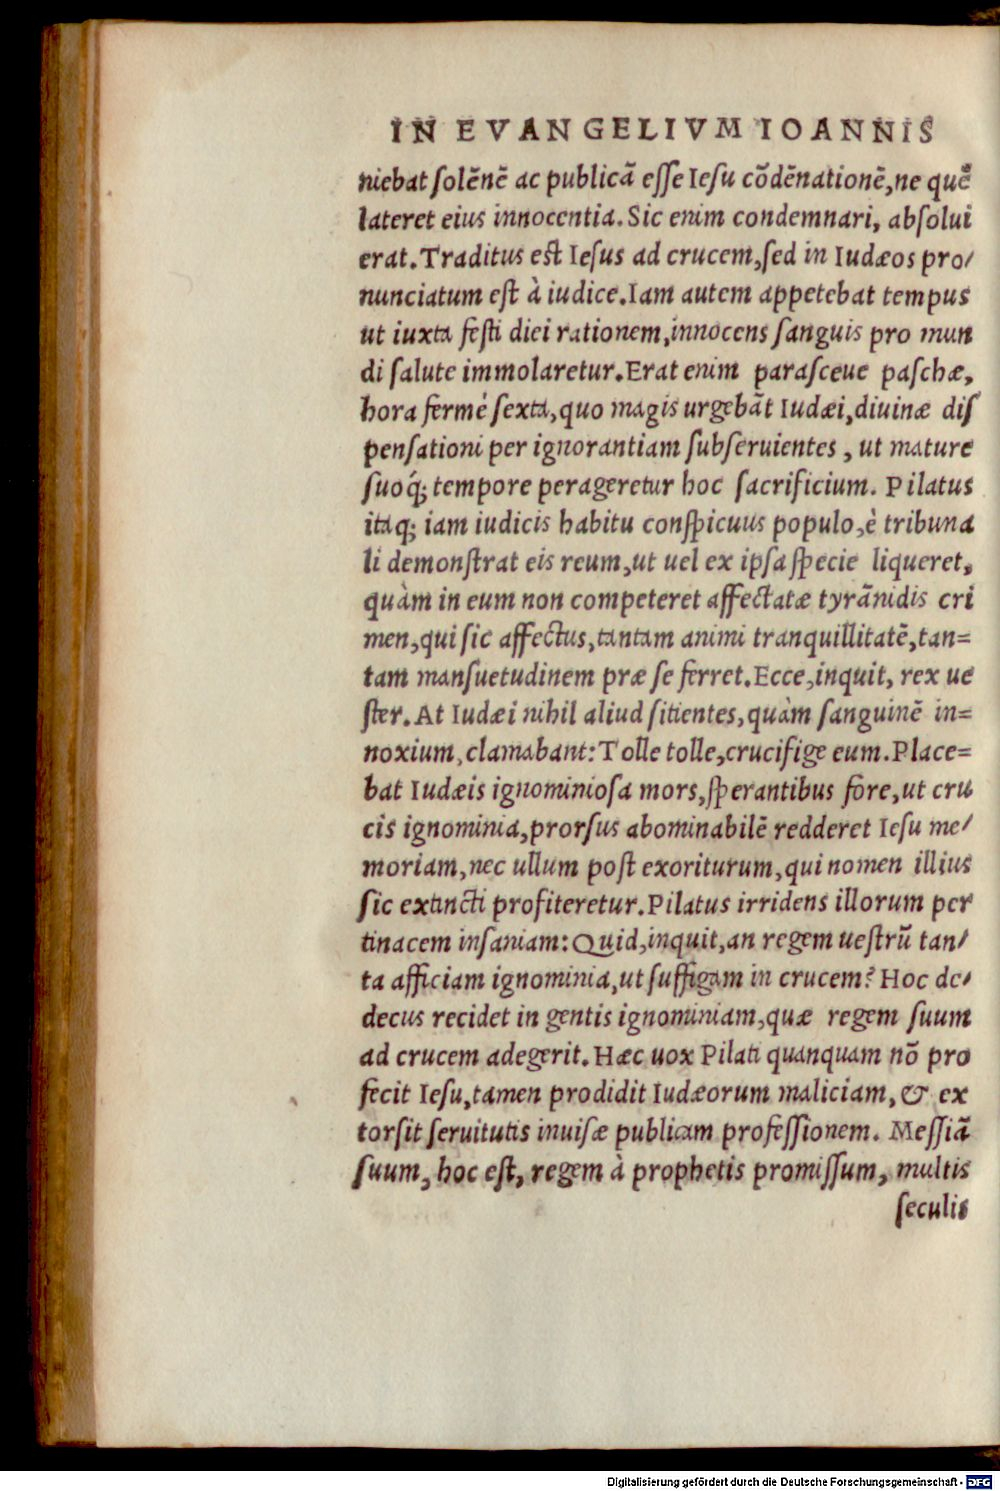 IN EVANGELIVM IOANNIS
niebat ſolēnē ac publicā eſſe Ieſu cōdēnationē, ne quē
lateret eius innocentia. Sic enim condemnari, abſolui
erat. Traditus eſt Ieſus ad crucem, ſed in Iudæos pro/
nunciatum eſt à iudice. Iam autem appetebat tempus
ut iuxta feſti diei rationem, innocens ſanguis pro mun
di ſalute immolaretur. Erat enim paraſceue paſchæ,
hora fermè ſexta, quo magis urgebāt Iudæi, diuinæ diſ
penſationi per ignorantiam ſubſeruientes, ut mature
ſuoq́; tempore perageretur hoc ſacrificium. Pilatus
itaq; iam iudicis habitu conſpicuus populo, è tribuna
li demonſtrat eis reum, ut uel ex ipſa ſpecie liqueret,
quàm in eum non competeret affectatæ tyrānidis cri
men, qui ſic affectus, tantam animi tranquillitatē, tan=
tam manſuetudinem præ ſe ferret. Ecce, inquit, rex ue
ſter. At Iudæi nihil aliud ſitientes, quàm ſanguinē in=
noxium, clamabant: Tolle tolle, crucifige eum. Place=
bat Iudæis ignominioſa mors, ſperantibus fore, ut cru
cis ignominia, prorſus abominabilē redderet Ieſu me/
moriam, nec ullum poſt exoriturum, qui nomen illius
ſic extincti profiteretur. Pilatus irridens illorum per
tinacem inſaniam: Quid, inquit, an regem ueſtrū tan/
ta afficiam ignominia, ut ſuffigam in crucem? Hoc de/
decus recidet in gentis ignominiam, quæ regem ſuum
ad crucem adegerit. Hæc uox Pilati quanquam nō pro
fecit Ieſu, tamen prodidit Iudæorum maliciam, & ex
torſit ſeruitutis inuiſæ publicam profeſſionem. Meſſiā
ſuum, hoc eſt, regem à prophetis promiſſum, multis
ſeculis
Digitalisierung gefördert durch die Deutsche Forschungsgemeinschaft - DFG